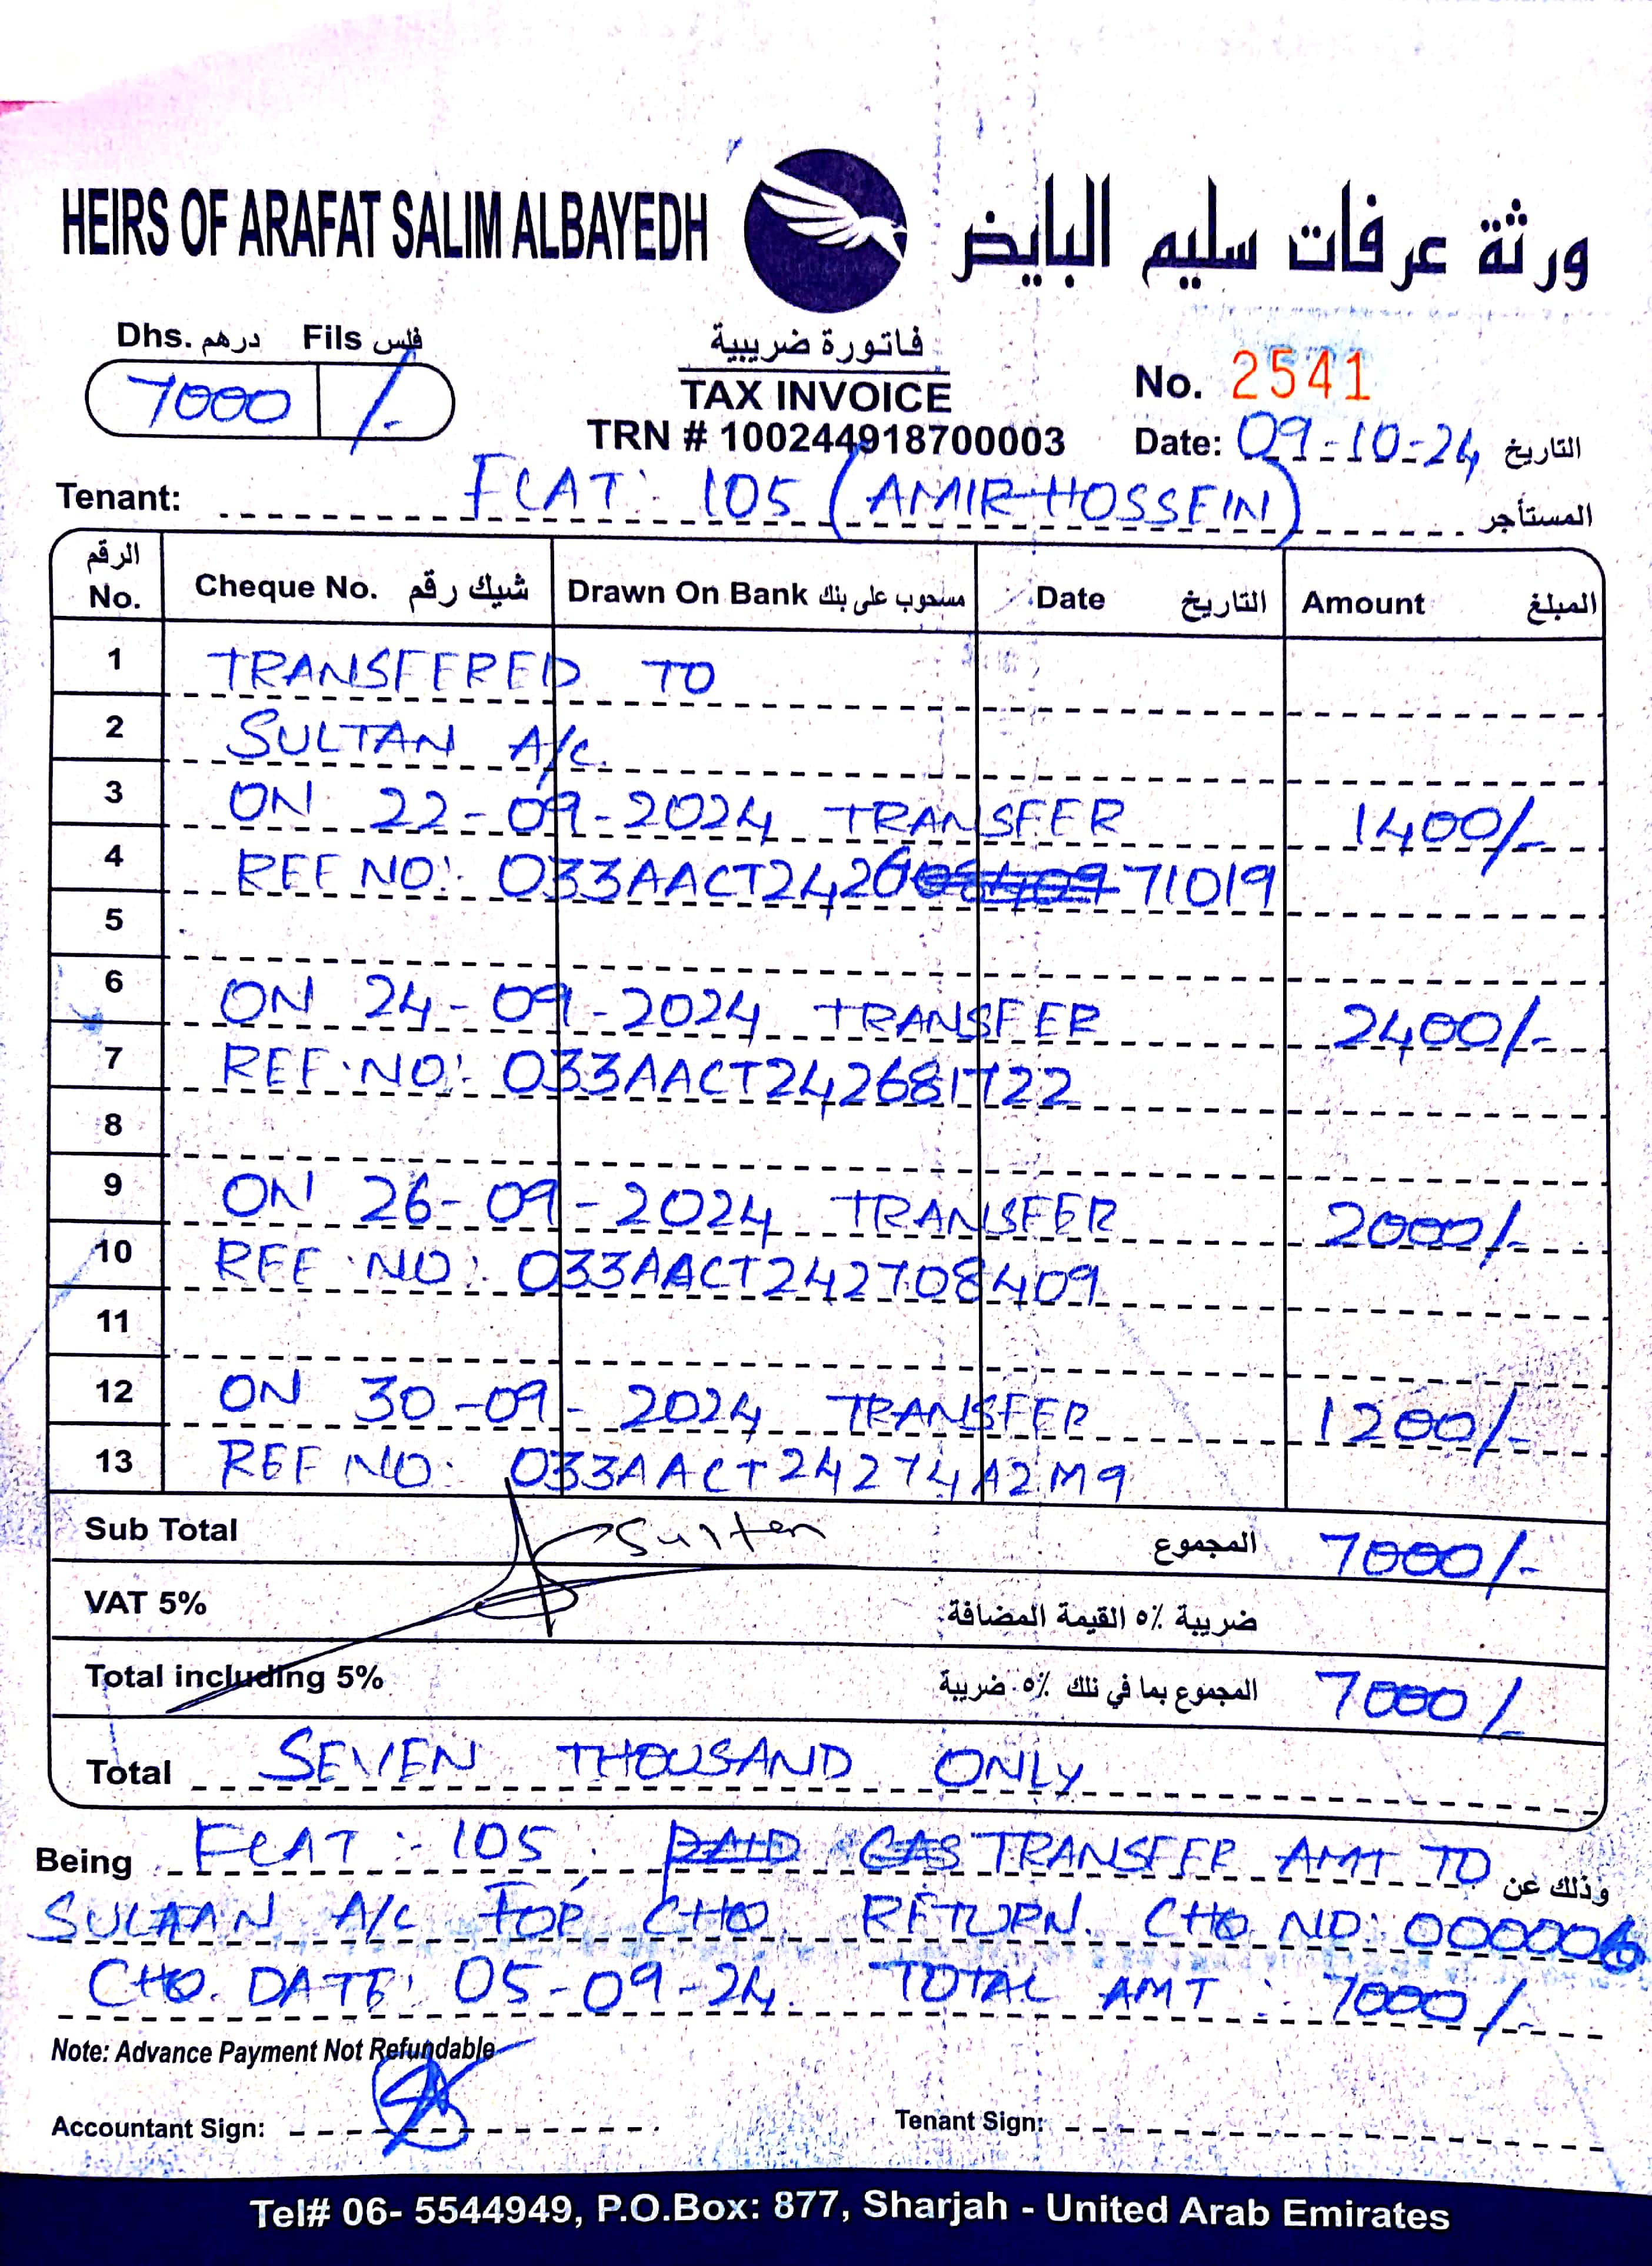 HEIRS OF ARAFAT SALIM ALBAYEDH
ورثة عرفات سليم البايض
Dhs. درهم Fils فلس
7000 /-
فاتورة ضريبية
TAX INVOICE
TRN # 100244918700003
No. 2541
Date: 09-10-24 التاريخ
Tenant: FLAT: 105 (AMIR HOSSEIN) المستأجر
الرقم No. Cheque No. شيك رقم Drawn On Bank مسحوب على بنك Date التاريخ Amount المبلغ
1 TRANSFERED TO
2 SULTAN A/C.
3 ON 22-09-2024 TRANSFER 1400/-
4 REF NO: 033AACT242671019
5
6 ON 24-09-2024 TRANSFER 2400/-
7 REF.NO: 033AACT242681722
8
9 ON 26-09-2024 TRANSFER 2000/-
10 REF.NO: 033AACT242708409
11
12 ON 30-09-2024 TRANSFER 1200/-
13 REF NO: 033AACT24274A2M9
Sub Total Sultan المجموع 7000/-
VAT 5% ضريبة ٥٪ القيمة المضافة
Total including 5% المجموع بما في ذلك ٥٪ ضريبة 7000/-
Total SEVEN THOUSAND ONLY
Being FLAT: 105, PAID GAS TRANSFER AMT TO وذلك عن
SULTAN A/C FOR CHQ. RETURN. CHQ NO: 000006
CHQ. DATE: 05-09-24. TOTAL AMT: 7000/-
Note: Advance Payment Not Refundable
Accountant Sign: Tenant Sign:
Tel# 06- 5544949, P.O.Box: 877, Sharjah - United Arab Emirates